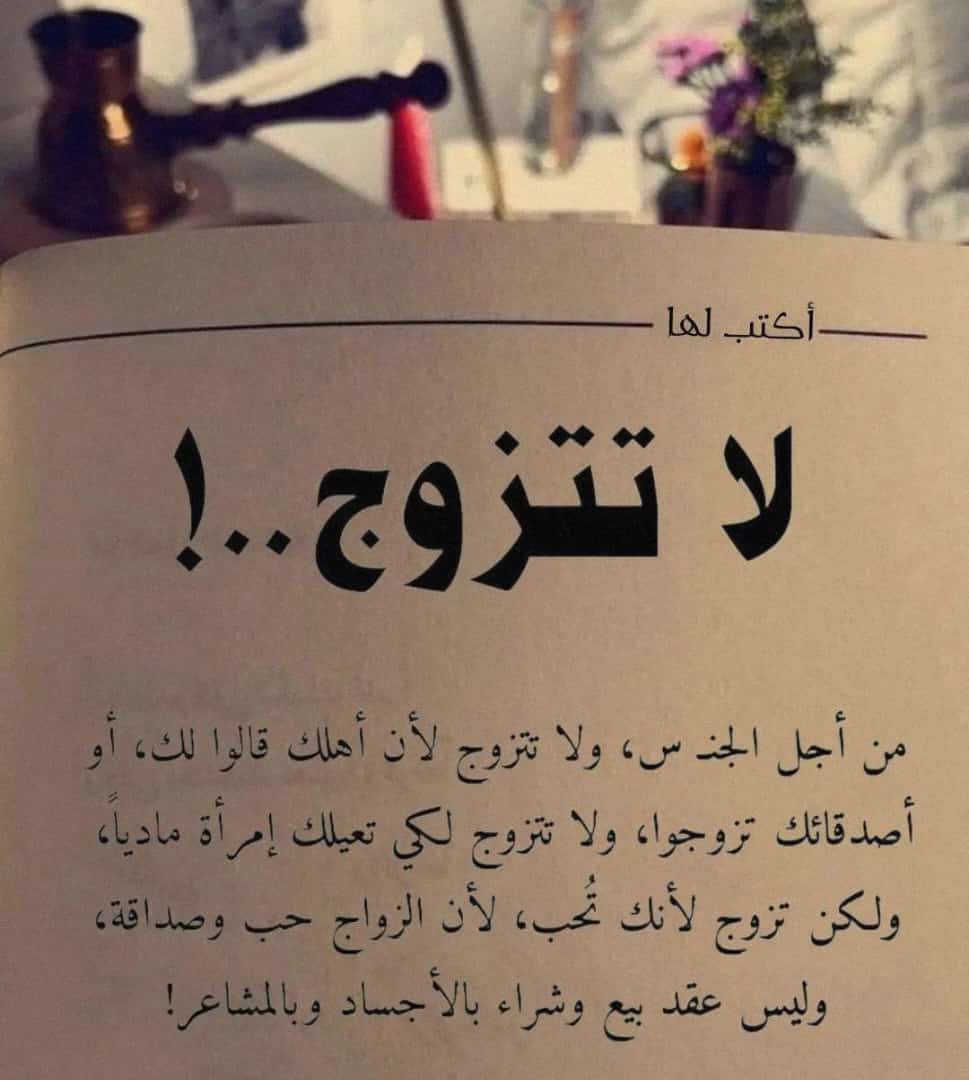 أكتب لها
لا تتزوج..!
من أجل الجنـ س، ولا تتزوج لأن أهلك قالوا لك، أو
أصدقائك تزوجوا، ولا تتزوج لكي تعيلك إمرأة مادياً،
ولكن تزوج لأنك تُحب، لأن الزواج حب وصداقة،
وليس عقد بيع وشراء بالأجساد وبالمشاعر!